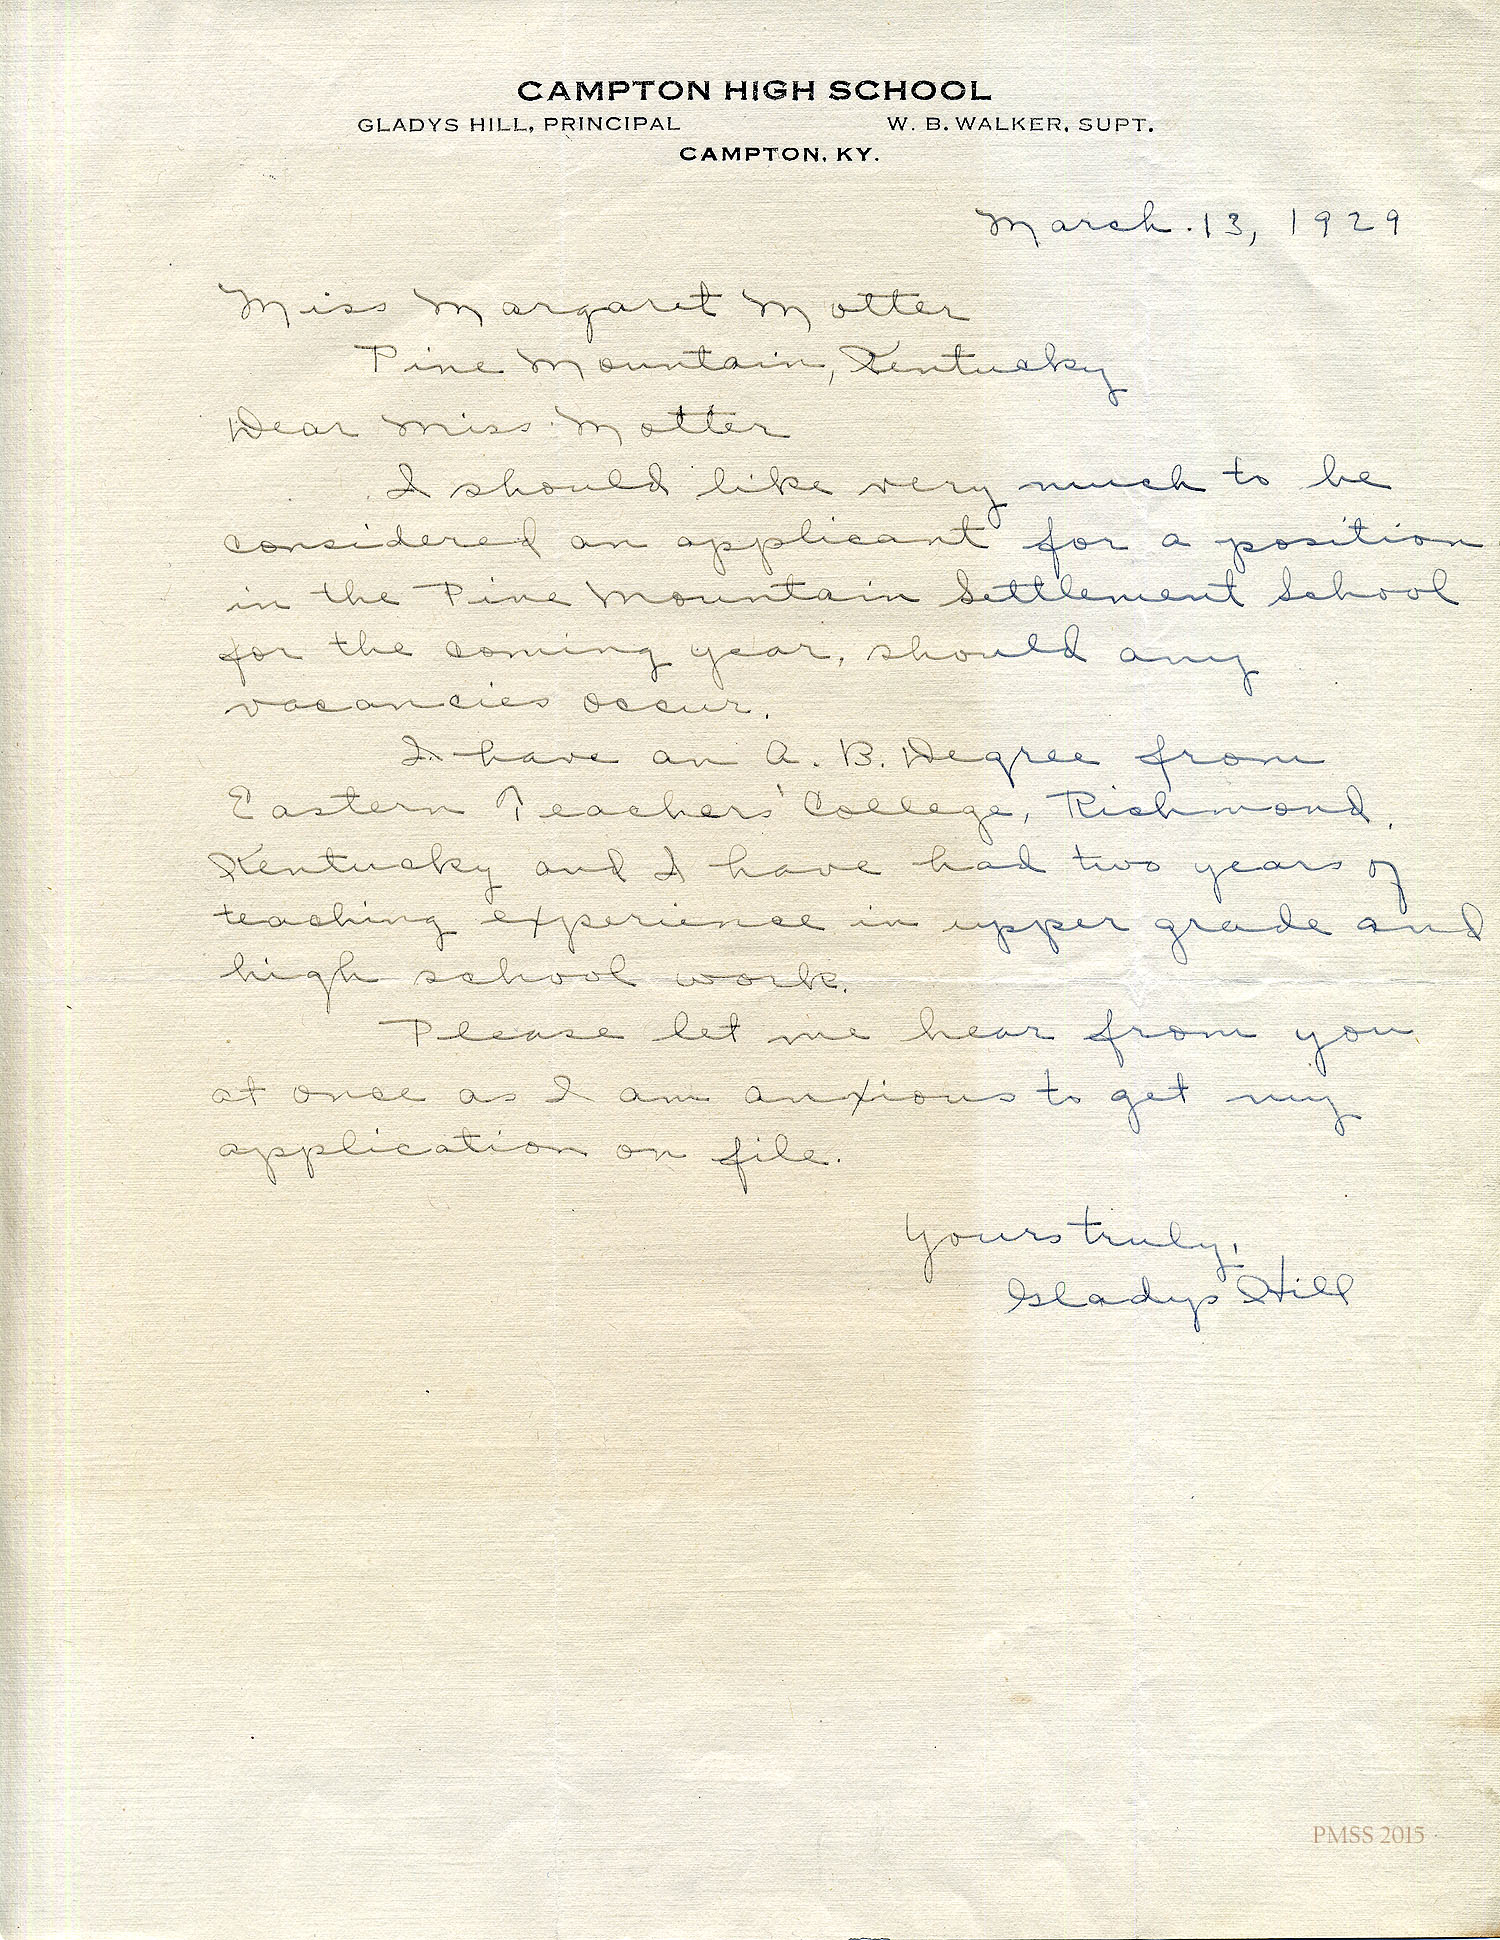 CAMPTON HIGH SCHOOL
GLADYS HILL, PRINCIPAL W. B. WALKER, SUPT.
CAMPTON, KY.
March. 13, 1929
Miss Margaret Motter
Pine Mountain, Kentucky
Dear Miss Motter
I should like very much to be
considered an applicant for a position
in the Pine Mountain Settlement School
for the coming year, should any
vacancies occur.
I have an A. B. Degree from
Eastern Teachers' College, Richmond,
Kentucky and I have had two years of
teaching experience in upper grade and
high school work.
Please let me hear from you
at once as I am anxious to get my
application on file.
Yours truly,
Gladys Hill
PMSS 2015